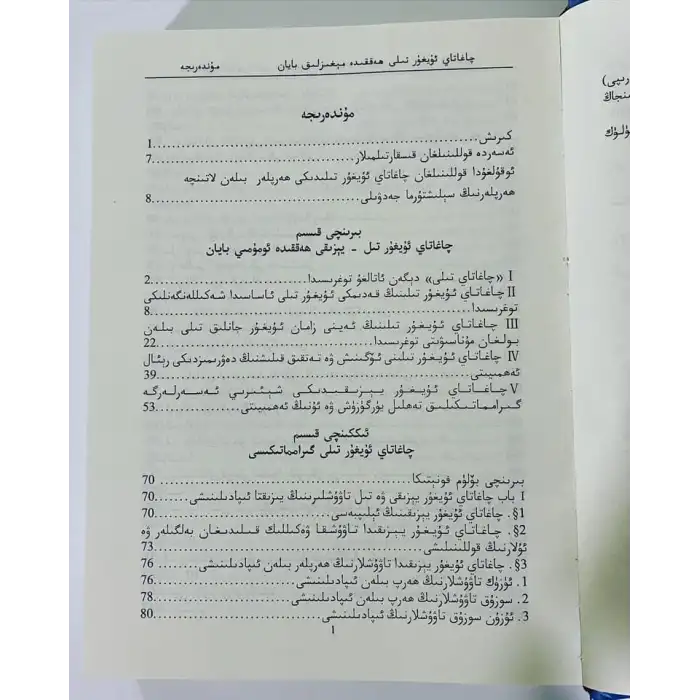 چاغاتاي ئۇيغۇر تىلى ھەققىدە مېغىزلىق بايان مۇندەرىجە
مۇندەرىجە
كىرىش......1
ئەسەردە قوللىنىلغان قىسقارتىلمىلار......7
ئوقۇلغۇدا قوللىنىلغان چاغاتاي ئۇيغۇر تىلىدىكى ھەرپلەر بىلەن لاتىنچە
ھەرپلەرنىڭ سېلىشتۇرما جەدۋىلى......8
بىرىنچى قىسىم
چاغاتاي ئۇيغۇر تىل - يېزىقى ھەققىدە ئومۇمىي بايان
I «چاغاتاي تىلى» دېگەن ئاتالغۇ توغرىسىدا......2
II چاغاتاي ئۇيغۇر تىلىنىڭ قەدىمكى ئۇيغۇر تىلى ئاساسىدا شەكىللەنگەنلىكى
توغرىسىدا......8
III چاغاتاي ئۇيغۇر تىلىنىڭ ئەينى زامان ئۇيغۇر جانلىق تىلى بىلەن
بولغان مۇناسىۋىتى توغرىسىدا......22
IV چاغاتاي ئۇيغۇر تىلىنى ئۆگىنىش ۋە تەتقىق قىلىشنىڭ دەۋرىمىزدىكى رېئال
ئەھمىيىتى......39
V چاغاتاي ئۇيغۇر يېزىقىدىكى شېئىرىي ئەسەرلەرگە
گىرامماتىكىلىق تەھلىل يۈرگۈزۈش ۋە ئۇنىڭ ئەھمىيىتى......53
ئىككىنچى قىسىم
چاغاتاي ئۇيغۇر تىلى گىرامماتىكىسى
بىرىنچى بۆلۈم فونېتىكا......70
I باب چاغاتاي ئۇيغۇر يېزىقى ۋە تىل تاۋۇشلىرىنىڭ يېزىقتا ئىپادىلىنىشى......70
§1. چاغاتاي ئۇيغۇر يېزىقىنىڭ ئېلىپبەسى......70
§2. چاغاتاي ئۇيغۇر يېزىقىدا تاۋۇشقا ۋەكىللىك قىلىدىغان بەلگىلەر ۋە
ئۇلارنىڭ قوللىنىلىشى......73
§3. چاغاتاي ئۇيغۇر يېزىقىدا تاۋۇشلارنىڭ ھەرپلەر بىلەن ئىپادىلىنىشى......76
1. ئۈزۈك تاۋۇشلارنىڭ ھەرپ بىلەن ئىپادىلىنىشى......76
2. سوزۇق تاۋۇشلارنىڭ ھەرپ بىلەن ئىپادىلىنىشى......78
3. ئۇزۇن سوزۇق تاۋۇشلارنىڭ ئىپادىلىنىشى......80
1